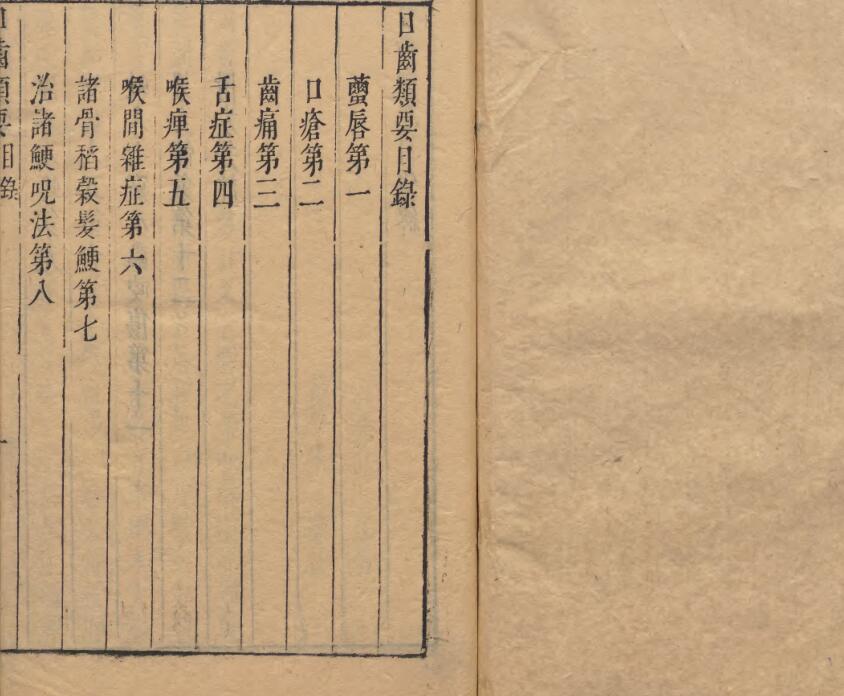 口齒類要目錄
蠒唇第一
口瘡第二
齒痛第三
舌症第四
喉痺第五
喉間雜症第六
諸骨稻穀髮鯁第七
治諸鯁呪法第八
口齒類要目錄
一